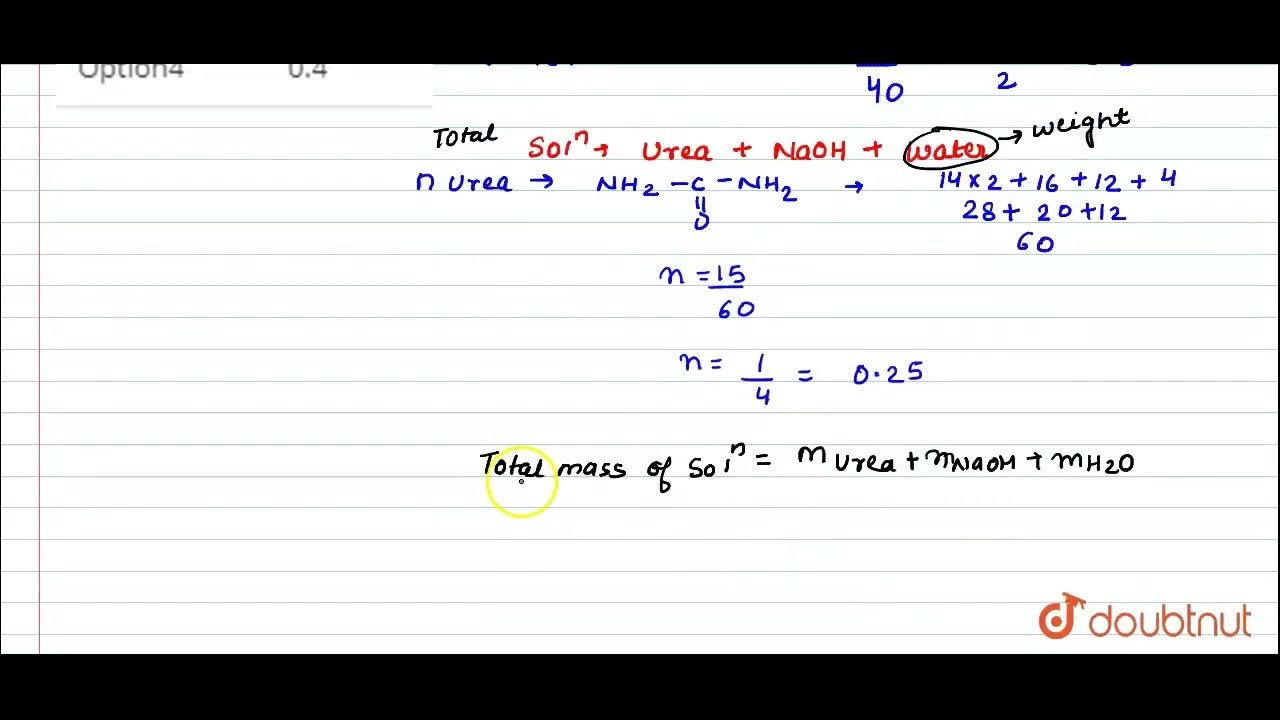 Option4 0.4
40 2
Total Solⁿ → Urea + NaOH + water → weight
n Urea → NH2 - C - NH2 → 14 × 2 + 16 + 12 + 4
|| 28 + 20 + 12
O 60
n = 15
60
n = 1 = 0.25
4
Total mass of Solⁿ = m Urea + mNaOH + mH2O
doubtnut